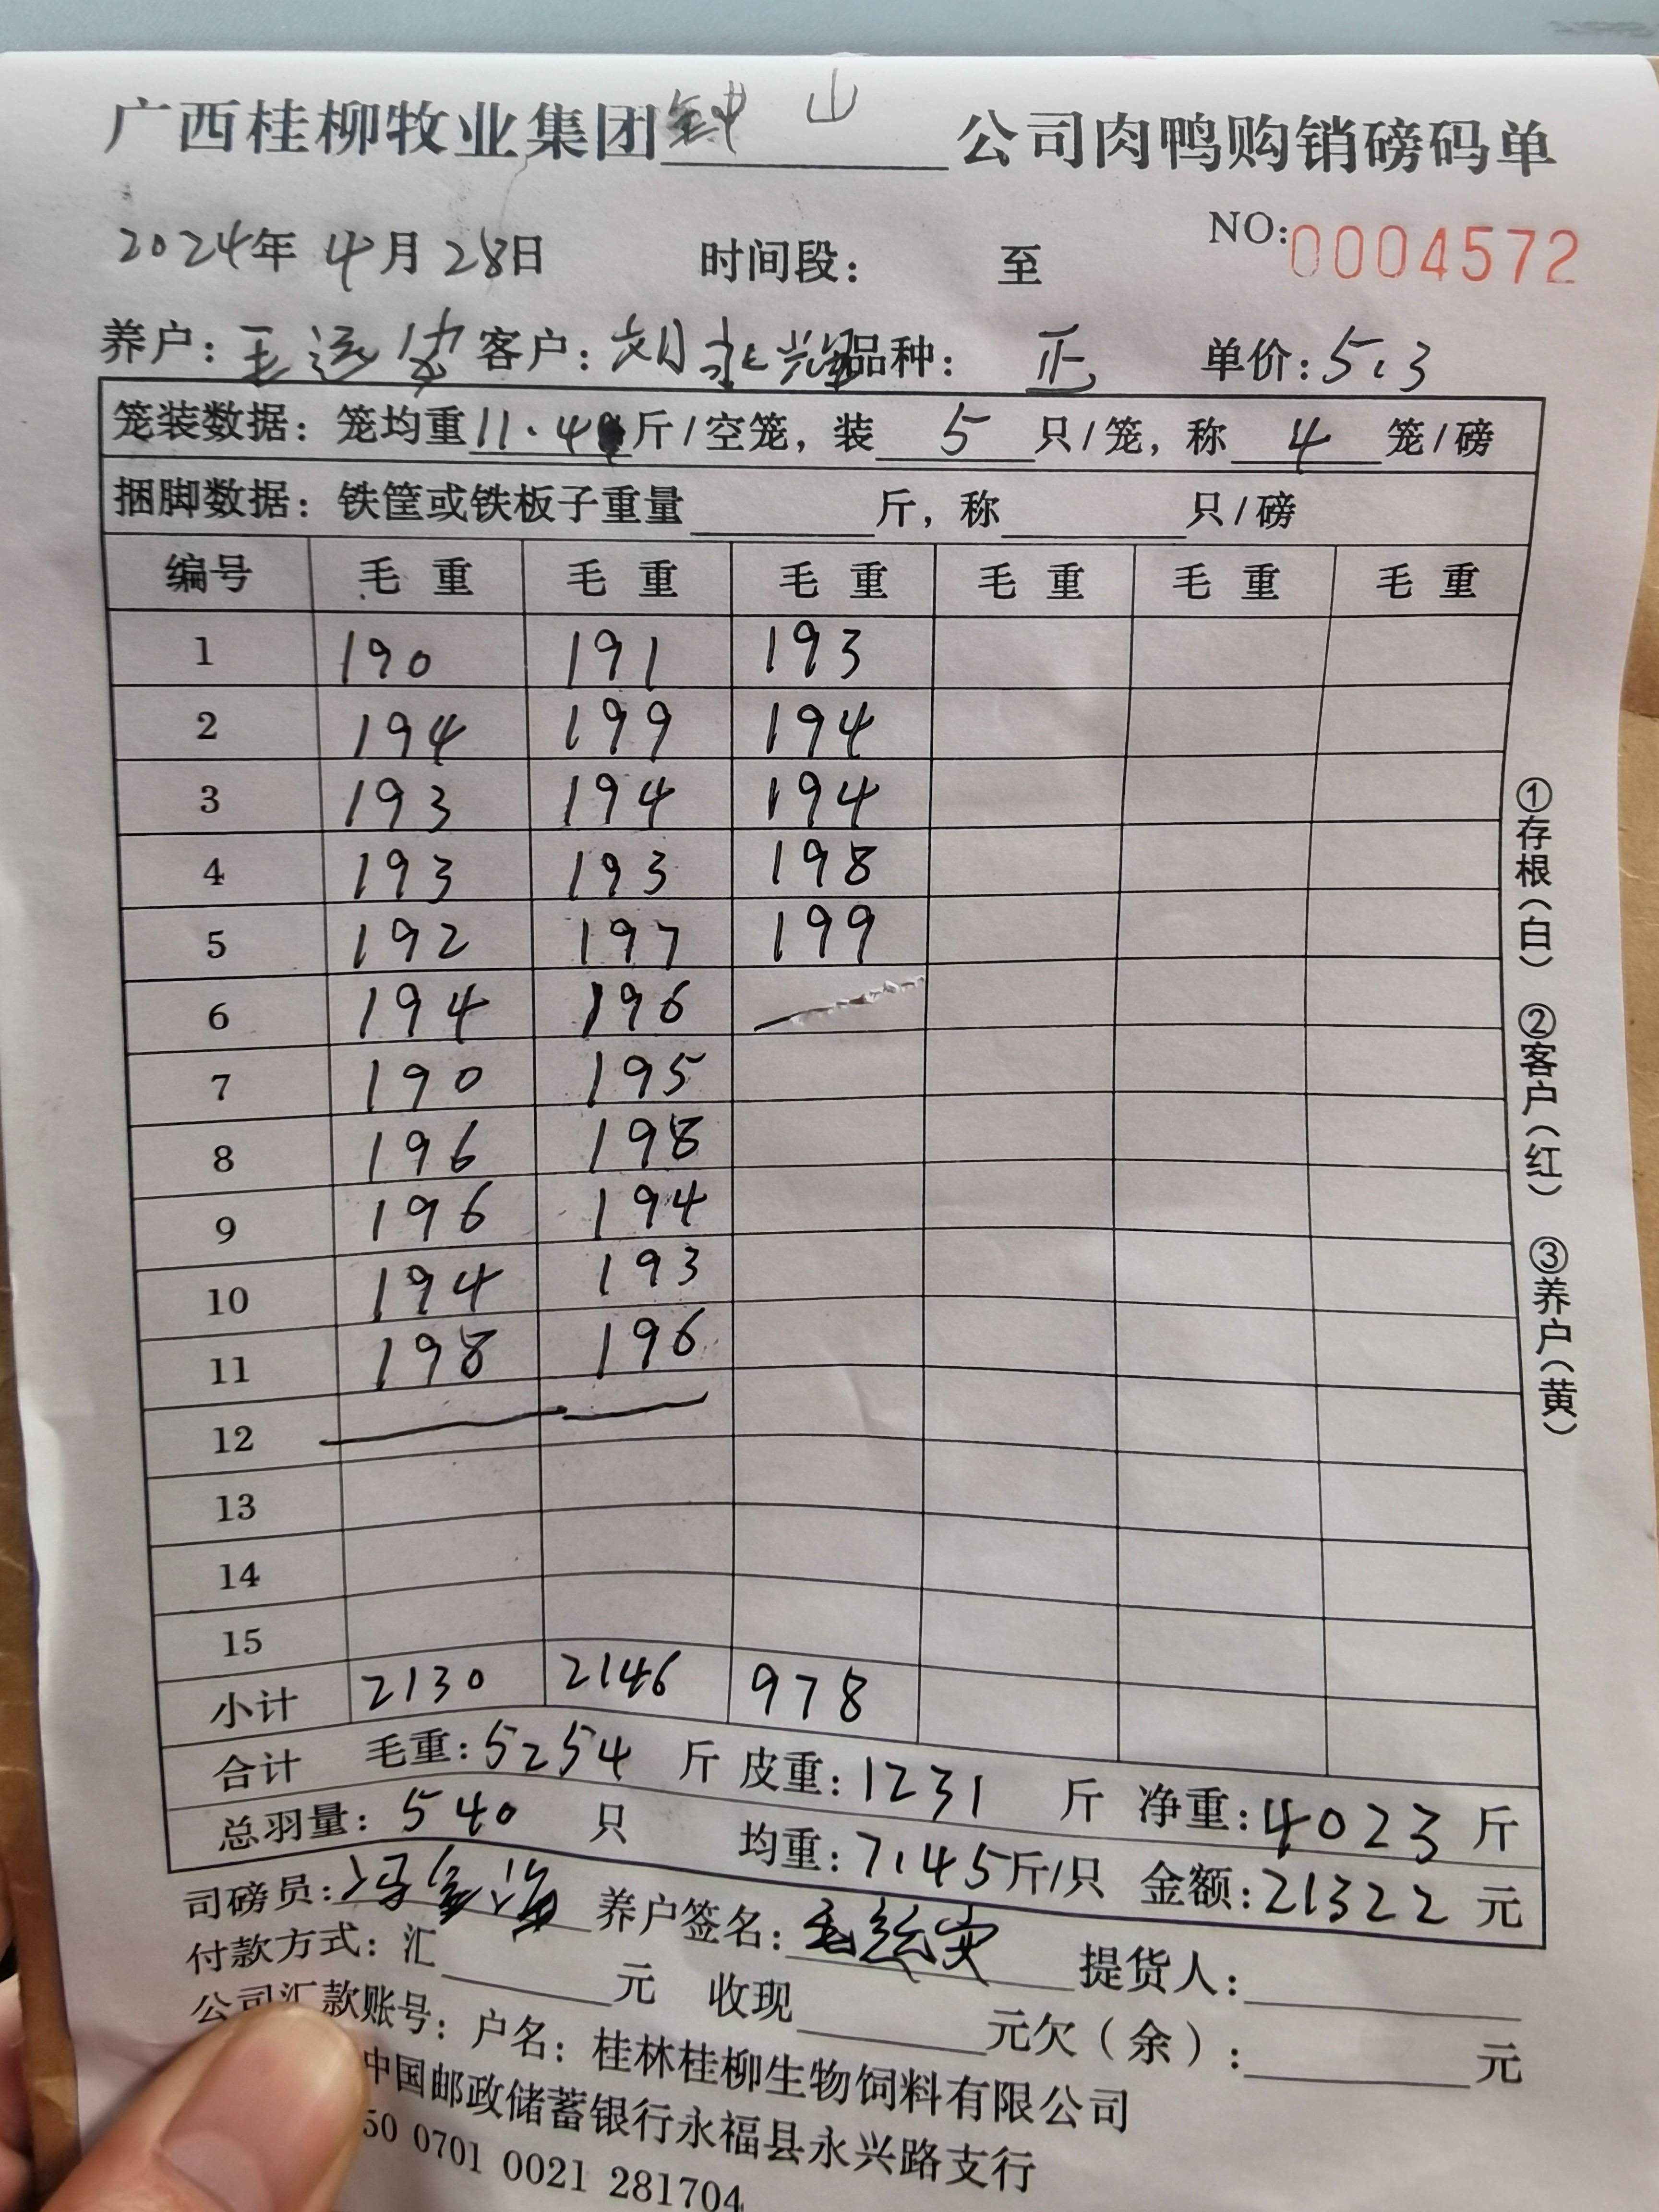 广西桂柳牧业集团 钟山 公司肉鸭购销磅码单
NO:0004572
2024年 4月 28日 时间段: 至
养户: 客户:刘永 品种: 正 单价:5.3
笼装数据:笼均重11.4 斤/空笼,装 5 只/笼,称 4 笼/磅
捆脚数据:铁筐或铁板子重量 斤,称 只/磅
编号 毛重 毛重 毛重 毛重 毛重 毛重
1 190 191 193
2 194 199 194
3 193 194 194
4 193 193 198
5 192 197 199
6 194 196
7 190 195
8 196 198
9 196 194
10 194 193
11 198 196
12
13
14
15
小计 2130 2146 978
合计 毛重:5254 斤 皮重:1231 斤 净重:4023 斤
总羽量:540 只 均重:7.45斤/只 金额:21322 元
司磅员: 养户签名: 提货人:
付款方式:汇 元 收现 元欠(余): 元
公司汇款账号:户名:桂林桂柳生物饲料有限公司
中国邮政储蓄银行永福县永兴路支行
50 0701 0021 281704
①存根(白) ②客户(红) ③养户(黄)